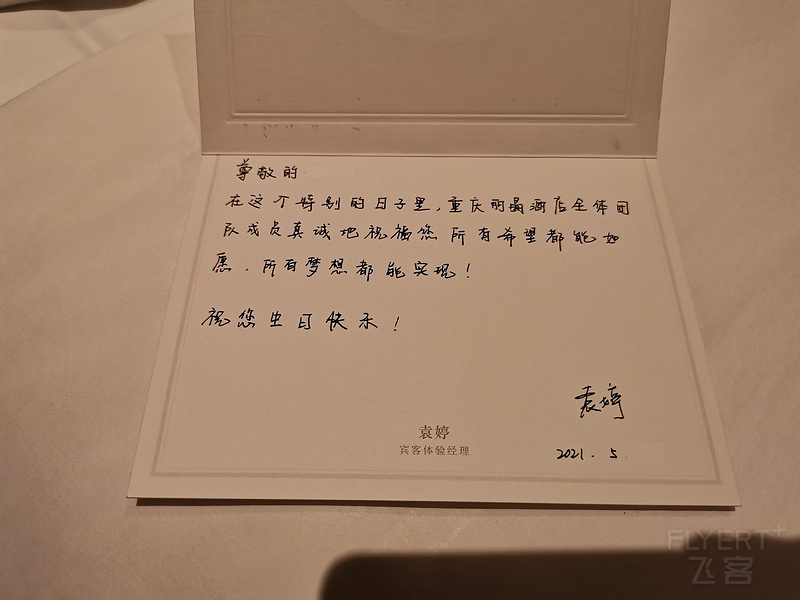 尊敬的
在这个特别的日子里,重庆丽晶酒店全体团
队成员真诚地祝福您所有希望都能如
愿,所有梦想都能实现!
祝您生日快乐!
袁婷
袁婷
宾客体验经理
2021.5
FLYERT+
飞客